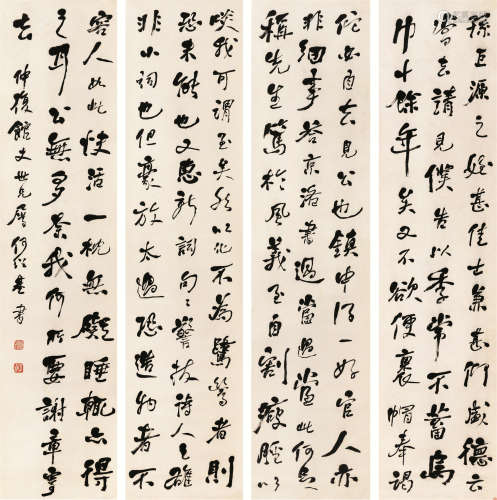 孫巨源之姪甚佳士兼甚門盛德云
當去請見僕告以季常不蓄烏
巾十餘年矣又不欲便裹帽奉謁
佗必自去見公也鎮中得一好官人亦
非細事答京洛書過當過當此何足
稱先生篤於風義至自割瘦脛以
啖我可謂至矣然以化不為者則
恐未能也又惠新詞句〻警拔詩人之雄
非小詞也但豪放太過恐造物者不
容人如此快活一枕無礙睡輒亦得
之耳公無多奈我何所要謝章寄
去 仲復館丈世兄屬 何紹基書